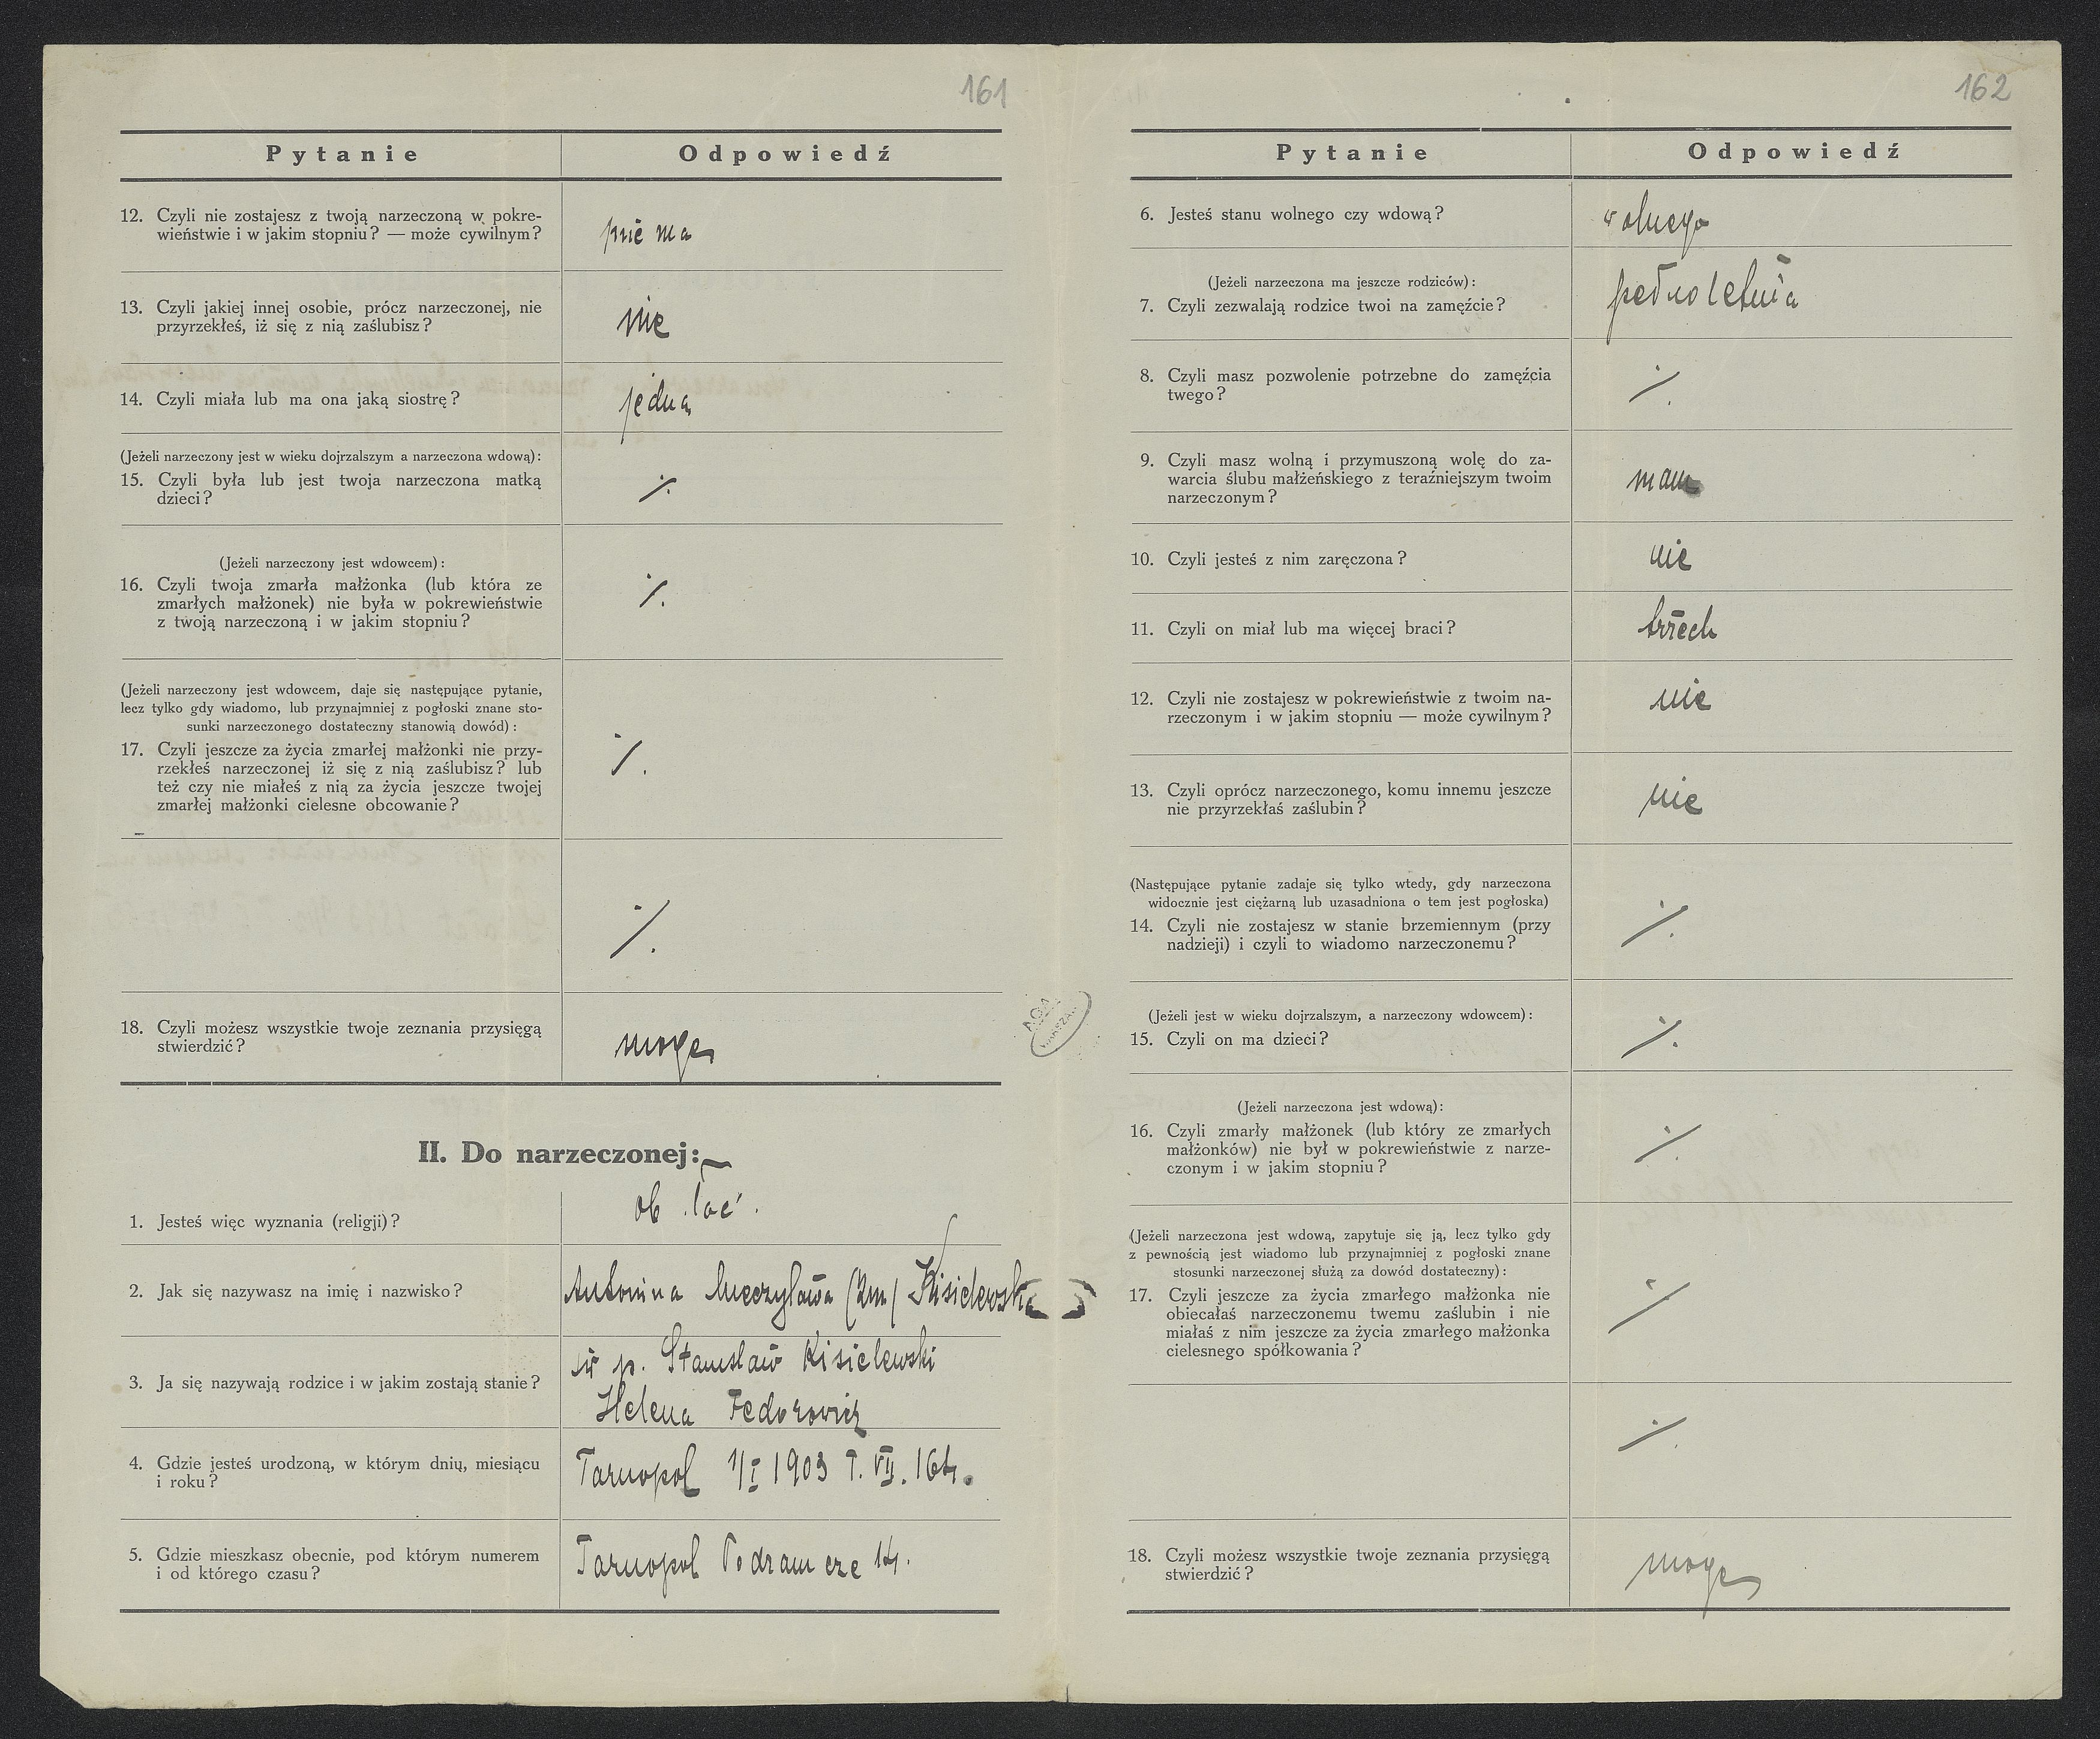 161
Pytanie Odpowiedź
12. Czyli nie zostajesz z twoją narzeczoną w pokre-
wieństwie i w jakim stopniu? — może cywilnym?
nie ma
13. Czyli jakiej innej osobie, prócz narzeczonej, nie
przyrzekłeś, iż się z nią zaślubisz?
nie
14. Czyli miała lub ma ona jaką siostrę?
jedną
(Jeżeli narzeczony jest w wieku dojrzalszym a narzeczona wdową):
15. Czyli była lub jest twoja narzeczona matką
dzieci?
⁒
(Jeżeli narzeczony jest wdowcem):
16. Czyli twoja zmarła małżonka (lub która ze
zmarłych małżonek) nie była w pokrewieństwie
z twoją narzeczoną i w jakim stopniu?
⁒
(Jeżeli narzeczony jest wdowcem, daje się następujące pytanie,
lecz tylko gdy wiadomo, lub przynajmniej z pogłoski znane sto-
sunki narzeczonego dostateczny stanowią dowód):
17. Czyli jeszcze za życia zmarłej małżonki nie przy-
rzekłeś narzeczonej iż się z nią zaślubisz? lub
też czy nie miałeś z nią za życia jeszcze twojej
zmarłej małżonki cielesne obcowanie?
⁒
⁒
18. Czyli możesz wszystkie twoje zeznania przysięgą
stwierdzić?
mogę
II. Do narzeczonej:
1. Jesteś więc wyznania (religji)?
ob. łać.
2. Jak się nazywasz na imię i nazwisko?
Antonina Mieczysława (2im) Kisielewska
3. Ja się nazywają rodzice i w jakim zostają stanie?
śp. Stanisław Kisielewski
Helena Fedorowicz
4. Gdzie jesteś urodzoną, w którym dniu, miesiącu
i roku?
Tarnopol 1/I 1903 T. VII. 164.
5. Gdzie mieszkasz obecnie, pod którym numerem
i od którego czasu?
Tarnopol Podzamcze 14.
162
Pytanie Odpowiedź
6. Jesteś stanu wolnego czy wdową?
wolnego
(Jeżeli narzeczona ma jeszcze rodziców):
7. Czyli zezwalają rodzice twoi na zamęźcie?
pełnoletnia
8. Czyli masz pozwolenie potrzebne do zamęźcia
twego?
⁒
9. Czyli masz wolną i przymuszoną wolę do za-
warcia ślubu małżeńskiego z teraźniejszym twoim
narzeczonym?
mam
10. Czyli jesteś z nim zaręczona?
nie
11. Czyli on miał lub ma więcej braci?
trzech
12. Czyli nie zostajesz w pokrewieństwie z twoim na-
rzeczonym i w jakim stopniu — może cywilnym?
nie
13. Czyli oprócz narzeczonego, komu innemu jeszcze
nie przyrzekłaś zaślubin?
nie
(Następujące pytanie zadaje się tylko wtedy, gdy narzeczona
widocznie jest ciężarną lub uzasadniona o tem jest pogłoska)
14. Czyli nie zostajesz w stanie brzemiennym (przy
nadzieji) i czyli to wiadomo narzeczonemu?
⁒
(Jeżeli jest w wieku dojrzalszym, a narzeczony wdowcem):
15. Czyli on ma dzieci?
⁒
(Jeżeli narzeczona jest wdową):
16. Czyli zmarły małżonek (lub który ze zmarłych
małżonków) nie był w pokrewieństwie z narze-
czonym i w jakim stopniu?
⁒
(Jeżeli narzeczona jest wdową, zapytuje się ją, lecz tylko gdy
z pewnością jest wiadomo lub przynajmniej z pogłoski znane
stosunki narzeczonej służą za dowód dostateczny):
17. Czyli jeszcze za życia zmarłego małżonka nie
obiecałaś narzeczonemu twemu zaślubin i nie
miałaś z nim jeszcze za życia zmarłego małżonka
cielesnego spółkowania?
⁒
⁒
18. Czyli możesz wszystkie twoje zeznania przysięgą
stwierdzić?
mogę